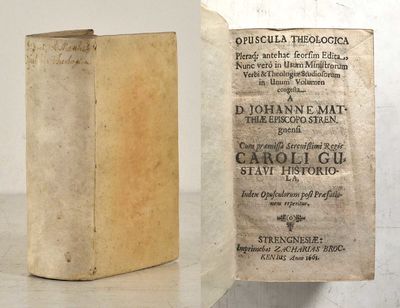 OPUSCULA THEOLOGICA
Pleraq; antehac seorsim Edita,
Nunc verò in Usum Ministrorum
Verbi & Theologiæ Studiosorum
in Unum Volumen
congesta
A
D. JOHANNE MAT-
THIÆ EPISCOPO STREN-
gnensi
Cum præmissâ Serenissimi Regis
CAROLI GU-
STAVI HISTORIO-
LA.
Index Opusculorum post Præfatio-
nem reperitur.
STRENGNESIÆ:
Imprimebat ZACHARIAS BROC-
KENIUS Anno 1661.